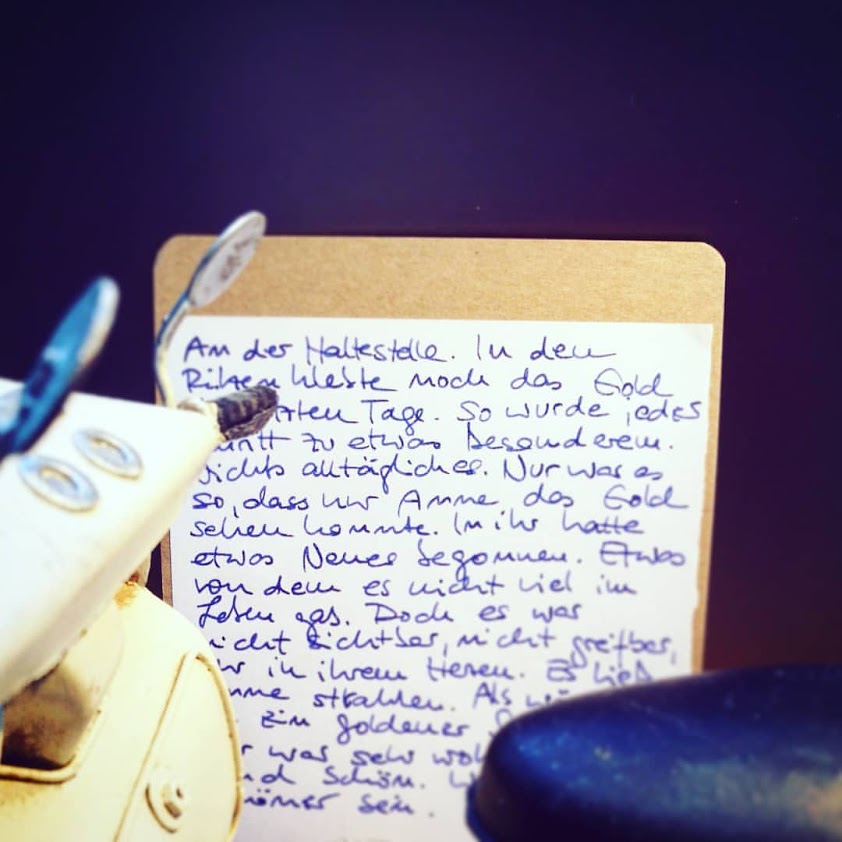 An der Haltestelle. In den
Ritzen klebte noch das Gold
Tage. So wurde jedes
zu etwas Besonderem.
Nichts alltägliches. Nur war es
so, dass nur Anne das Gold
sehen konnte. In ihr hatte
etwas Neues begonnen. Etwas
von dem es nicht viel im
Leben gab. Doch es war
nicht sichtbar, nicht greifbar,
in ihrem Herzen. Es ließ
strahlen. Als
Ein goldener
war sehr
schön.
sein.